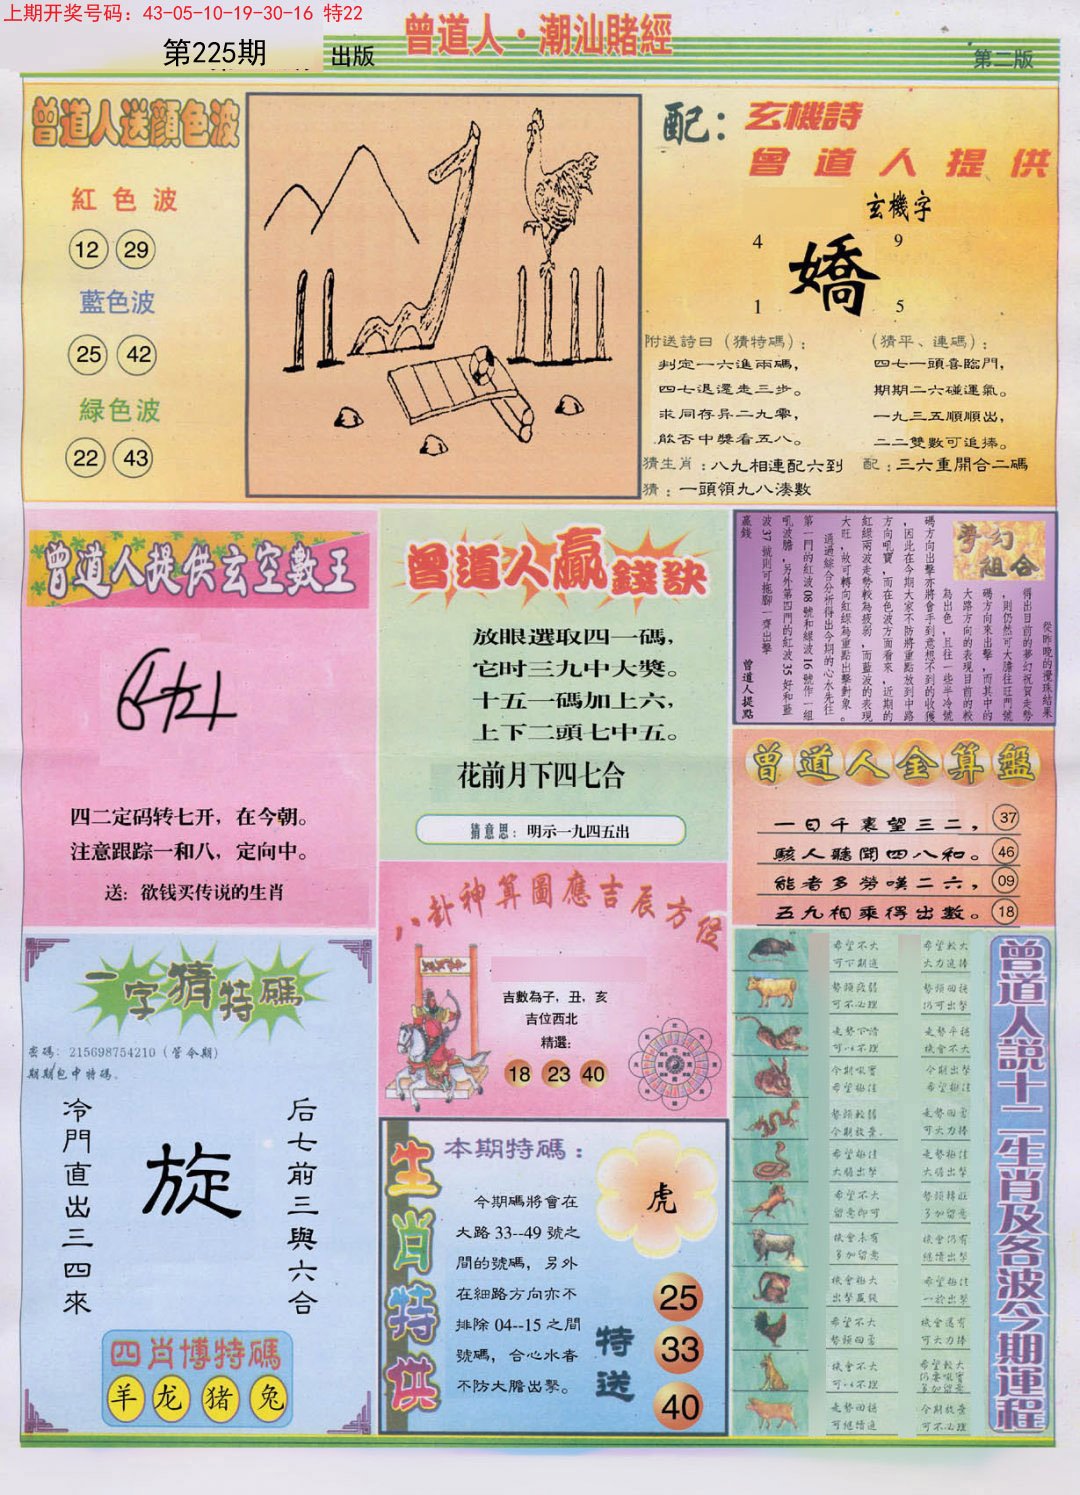 上期开奖号码：43-05-10-19-30-16 特22
第225期
出版
曾道人·潮汕賭經
第二版
曾道人送顏色波
紅色波
12 29
藍色波
25 42
緑色波
22 43
配：玄機詩
曾道人提供
玄機字
4 9
嬌
1 5
附送詩曰（猜特碼）；
判定一六進兩碼，
四七退還走三步。
求同存异二九零，
能否中獎看五八。
（猜平、連碼）；
四七一頭喜臨門，
期期二六碰運氣。
一九三五順順出，
二二雙數可追捧。
猜生肖：八九相連配六到
配：三六重開合二碼
猜：一頭領九八湊數
曾道人提供玄空數王
四二定码转七开，在今朝。
注意跟踪一和八，定向中。
送：欲钱买传说的生肖
曾道人贏錢訣
放眼選取四一碼，
它时三九中大獎。
十五一碼加上六，
上下二頭七中五。
花前月下四七合
猜意思：明示一九四五出
夢幻組合
從昨晚的攪珠結果
得出目前的夢幻祝賀走勢
，則仍然可大膽往旺門號
碼方向來出擊，而其中的
大路方向的表現目前的較
為出色，且往一些半冷號
碼方向出擊亦將會手到意想不到的收獲
，因此在今期大家不防將重點放到中路
方向吼寶，而在色波方面看來，近期的
紅綠兩波走勢較為疲弱，而藍波的表現
大旺，故可轉向紅綠為重點出擊對象。
通過綜合分析得出今期的心水先往
第一門的紅波08號和綠波16號作一組
吼波膽，另外第四門的紅波35好和藍
波37號則可拖腳一齊出擊
贏錢
曾道人提點
曾道人金算盤
一日千裏望三二，37
駭人聽聞四八和。46
能者多勞嘆二六，09
五九相乘得出數。18
八卦神算圖應吉辰方位
吉數為子，丑，亥
吉位西北
精選：
18 23 40
一字猜特碼
密碼：215698754210（管今期）
期期包中特碼。
冷門直出三四來
旋
后七前三與六合
四肖博特碼
羊 龙 猪 兔
生肖特供
本期特碼：
今期碼將會在
大路33--49號之
間的號碼，另外
在細路方向亦不
排除04--15之間
號碼，合心水者
不防大膽出擊。
虎
特送
25
33
40
曾道人說十二生肖及各波今期運程
希望不大
希望較大
大力追捧
勢頭疲弱
可不必理
勢頭回揚
仍可出擊
走勢平穩
機會不大
今期吼寶
希望極佳
今期出擊
希望極佳
勢頭較弱
今期放棄
走勢回勇
可大力捧
希望極佳
大膽出擊
走勢極佳
大膽出擊
希望不大
留意即可
勢頭轉旺
多加留意
機會未有
多加留意
機會仍有
繼續出擊
機會極大
希望極佳
希望不大
勢頭回勇
機會還有
可大力捧
機會不大
可以不理
希望較大
多加留意
走勢回揚
可繼續追
今期放棄
可不必理